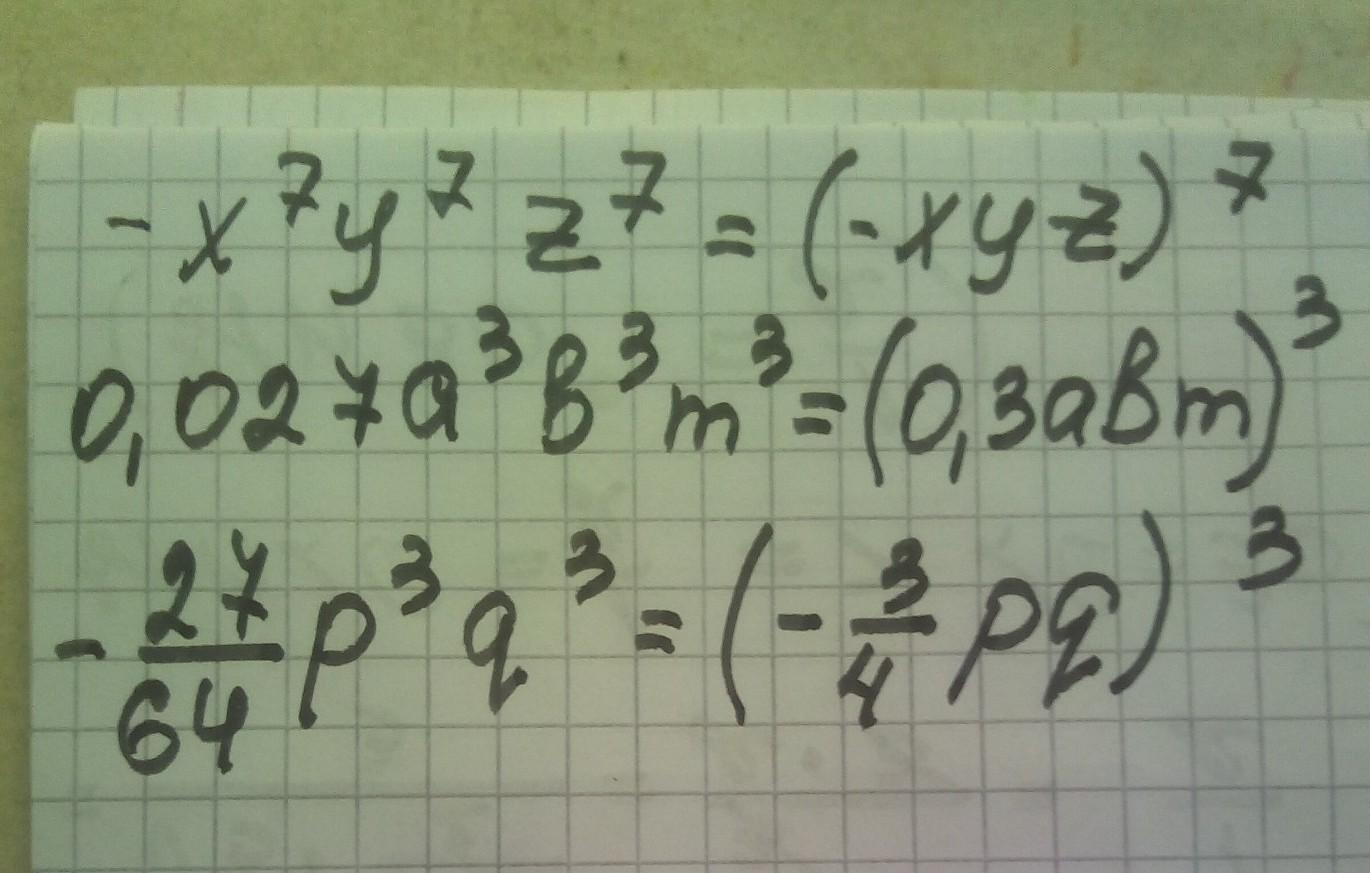 -x⁷y⁷z⁷=(-xyz)⁷
0,027a³b³m³=(0,3abm)³
-27/64p³q³=(-3/4pq)³